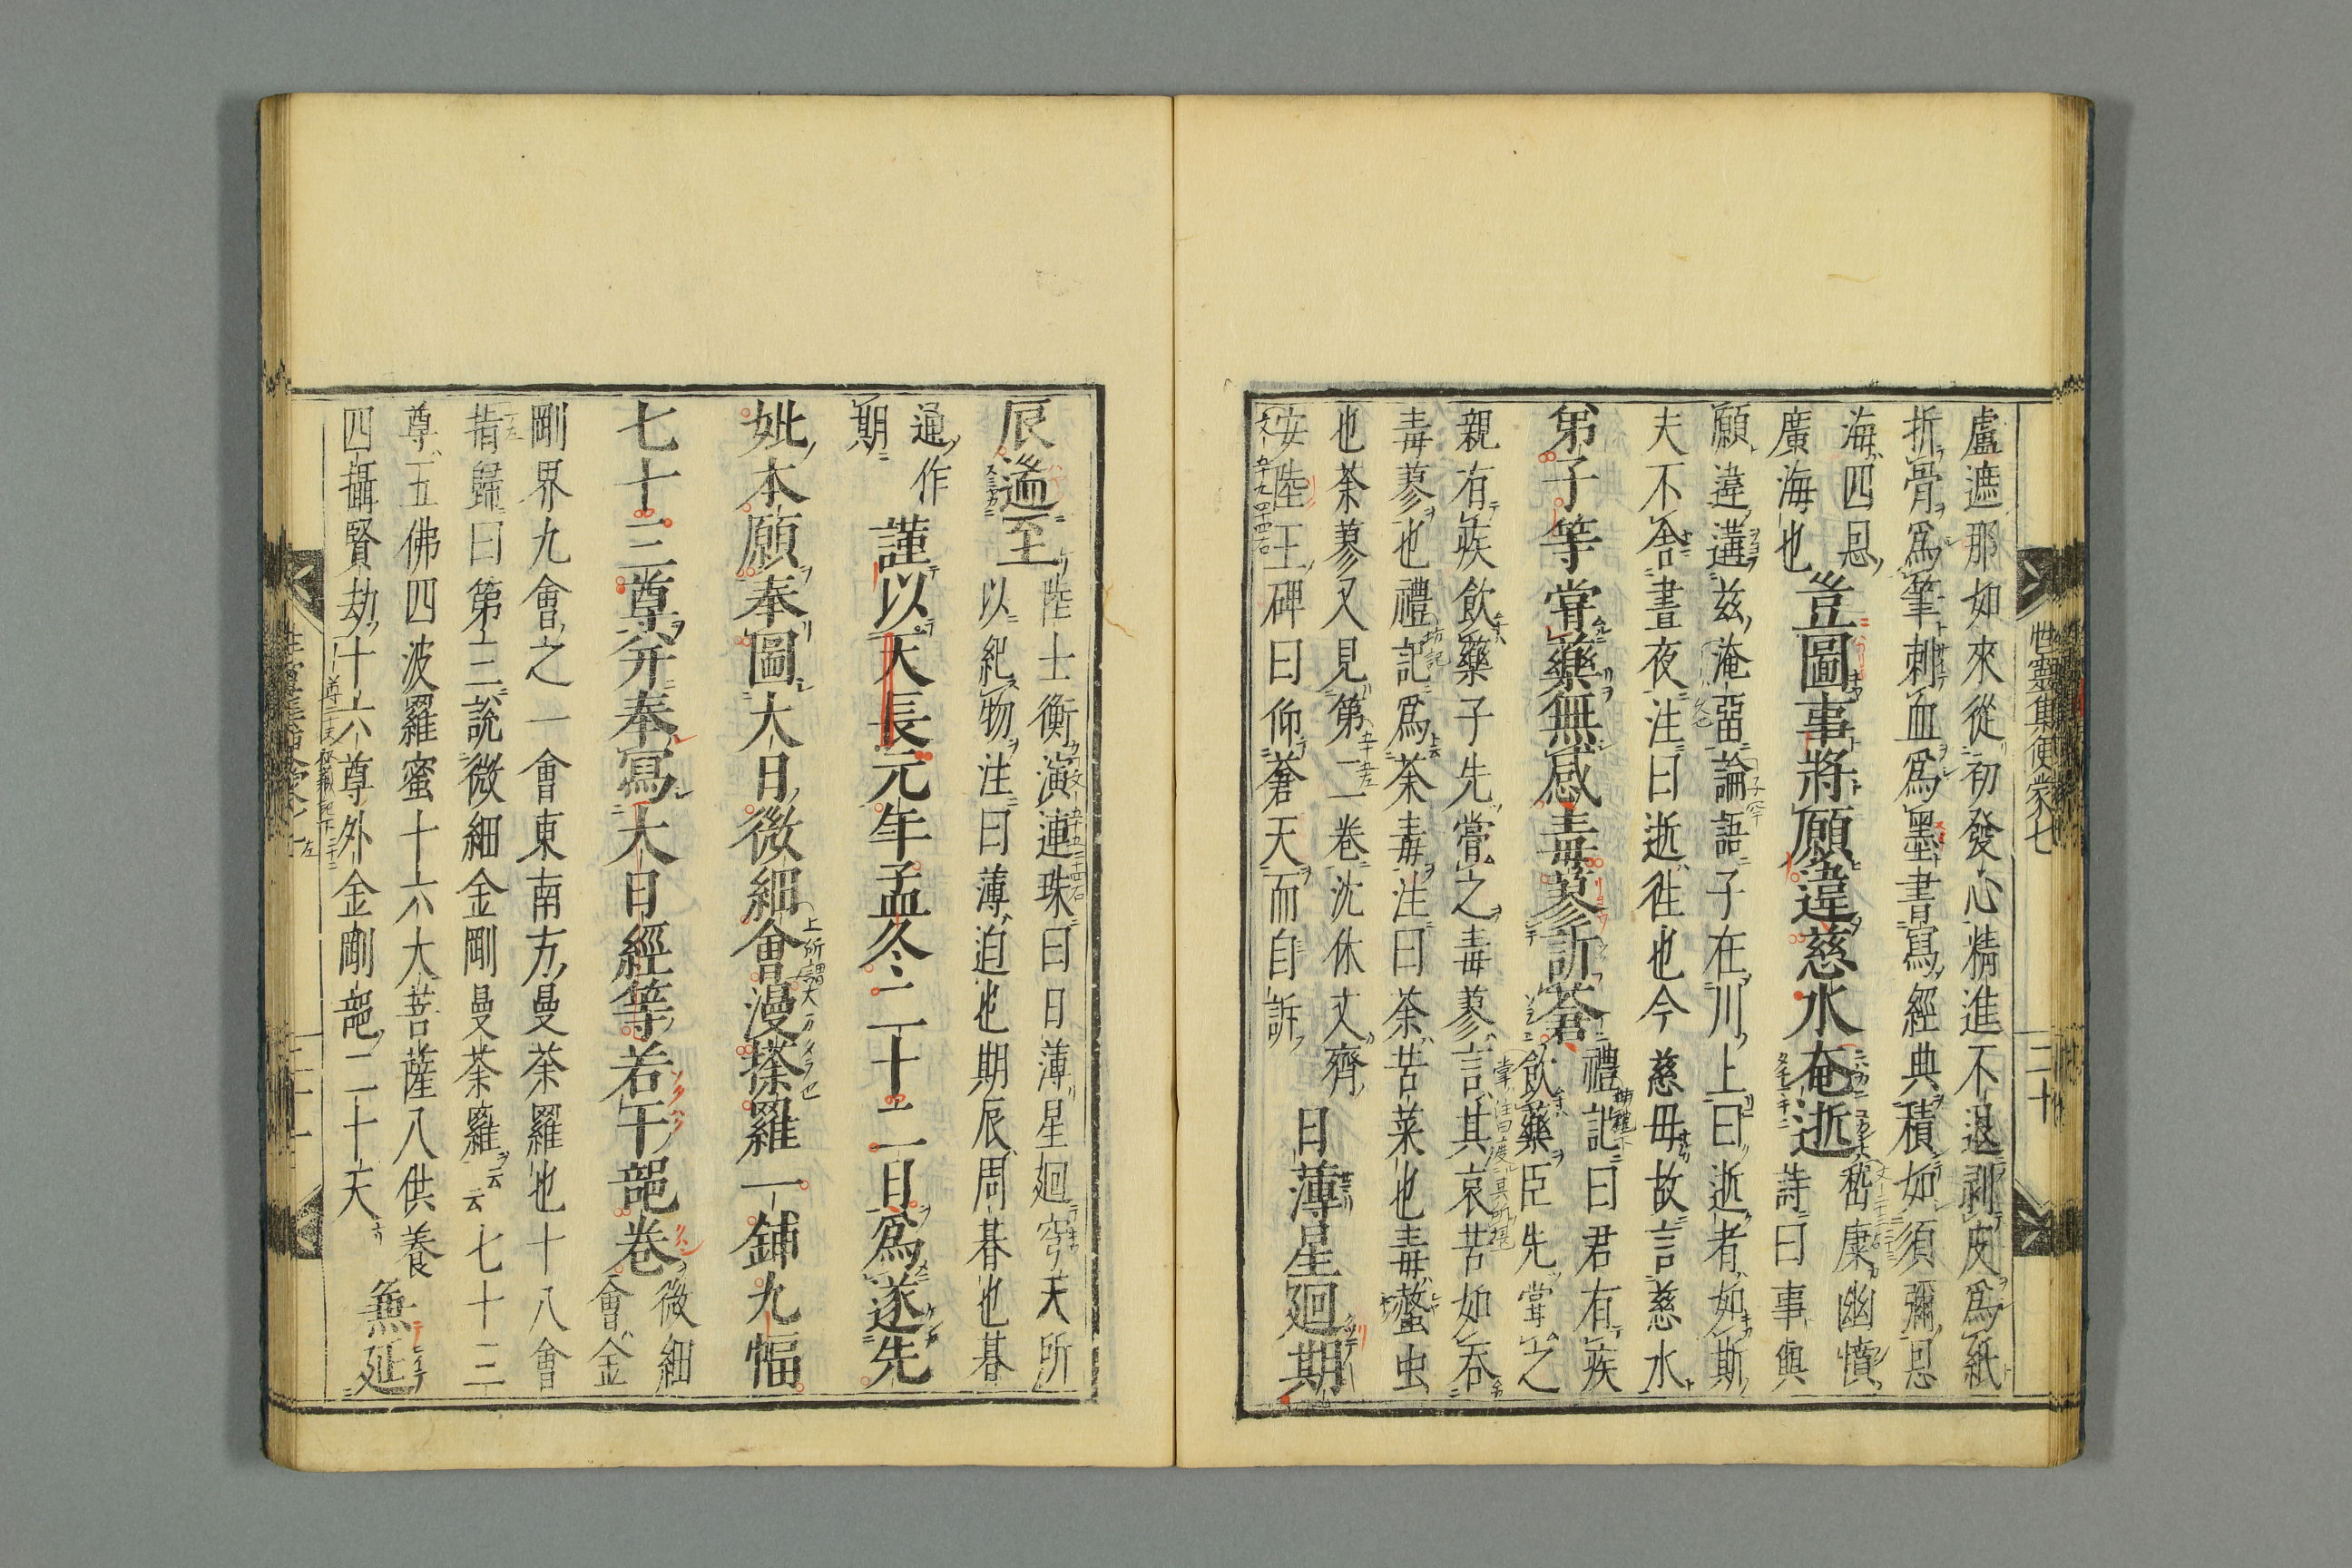 盧遮那如來從初發心精進不退剥皮爲紙
折骨爲筆刺血爲墨書寫經典積如須彌恩
海四恩
廣海也
豈圖事將願違慈水奄逝
嵆康幽憤
詩曰事與
願違遘茲淹畱論語子在川上曰逝者如斯
夫不舍晝夜注曰逝徃也今慈母故言慈水
第子等甞藥無感毒蓼訴蒼
禮記曰君有疾
飲藥臣先甞之
親有疾飲藥子先甞之毒蓼言其哀苦如吞
毒蓼也禮記爲荼毒注曰荼苦菜也毒螫虫
也荼蓼又見第二卷沈休文齊
安陸王碑曰仰蒼天而自訴
日薄星廻期
性靈集便蒙七
二十
辰遄至
陸士衡演連珠曰日薄星廻穹天所
以紀物注曰薄迫也期辰周朞也朞
通作
期
謹以天長元年孟冬二十二日爲遂先
妣本願奉圖大日微細會漫荼羅一鋪九幅
七十三尊幷奉寫大日經等若干部卷
微細
會金
剛界九會之一會東南方曼荼羅也十八會
指歸曰第三說微細金剛曼荼羅云云七十三
尊五佛四波羅蜜十六大菩薩八供養
四攝賢劫十六尊外金剛部二十天
無延